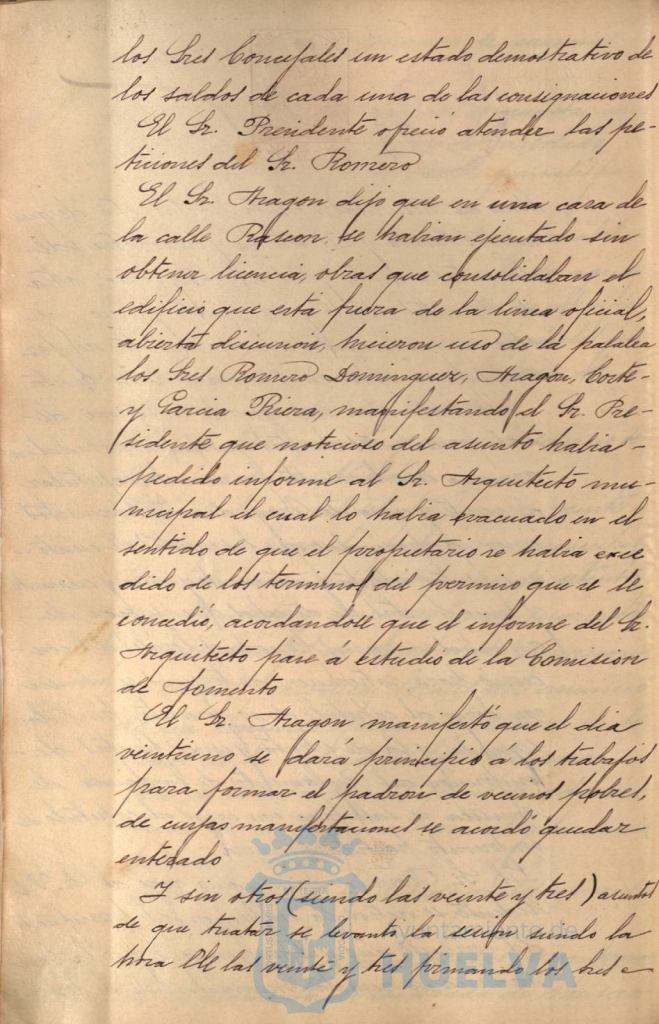 los Sres Concejales un estado demostrativo de
los saldos de cada una de las consignaciones
El Sr. Presidente ofreció atender las pe-
ticiones del Sr. Romero
El Sr. Aragon dijo que en una casa de
la calle Rascon, se habian ejecutado sin
obtener licencia, obras que consolidaban el
edificio que está fuera de la linea oficial,
abierta discusion, hicieron uso de la palabra
los Sres Romero Dominguez, Aragon, Corte-
y Garcia Riera, manifestando el Sr. Pre-
sidente que noticioso del asunto habia -
pedido informe al Sr. Arquitecto mu-
nicipal el cual lo habia evacuado en el
sentido de que el propietario se habia exce
dido de los terminos del permiso que se le
concedió, acordandose que el informe del Sr.
Arquitecto pase á estudio de la Comision
de fomento
El Sr. Aragon manifestó que el dia
veintiuno se dará principio á los trabajos
para formar el padron de vecinos pobres,
de cuyas manifestaciones se acordó quedar
enterado
Y sin otros (siendo las veinte y tres) asuntos
de que tratar se levantó la sesion siendo la
hora de las veinte y tres firmando los Sres
Ayuntamiento de
HUELVA